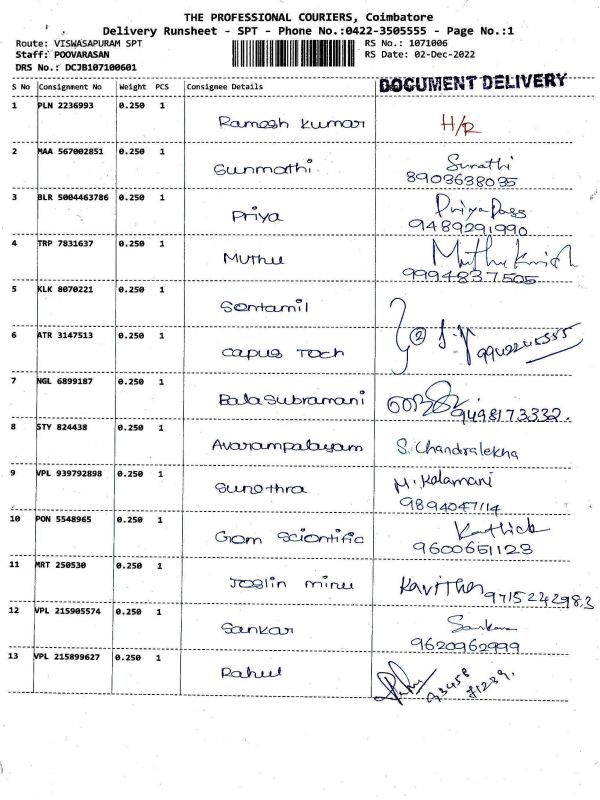 THE PROFESSIONAL COURIERS, Coimbatore
Delivery Runsheet - SPT - Phone No.:0422-3505555 - Page No.:1
Route: VISWASAPURAM SPT RS No.: 1071006
Staff: POOVARASAN RS Date: 02-Dec-2022
DRS No.: DCJB107100601
S No Consignment No Weight PCS Consignee Details DOCUMENT DELIVERY
1 PLN 2236993 0.250 1
Ramesh Kumar H/R
2 MAA 567002851 0.250 1
Gunmathi Sumathi
8903638035
3 BLR 5004463786 0.250 1
Priya Priya Dass
9489291990
4 TRP 7831637 0.250 1
Muthu
9994837505
5 KLK 8070221 0.250 1
Sentamil
6 ATR 3147513 0.250 1
Capus Toch 2
7 NGL 6899187 0.250 1
Bala Subramani 9498173332.
8 STY 824438 0.250 1
Avarampalayam S. Chandralekha
9 VPL 939792898 0.250 1
Sunothra M. Kalamani
9894047114
10 PON 5548965 0.250 1
Gom Scientific Karthick
9600651128
11 MRT 250530 0.250 1
Joslin minu Kavitha 9715242983
12 VPL 215905574 0.250 1
Sankar Sankar
9620962999
13 VPL 215899627 0.250 1
Rahul 93458
71239.